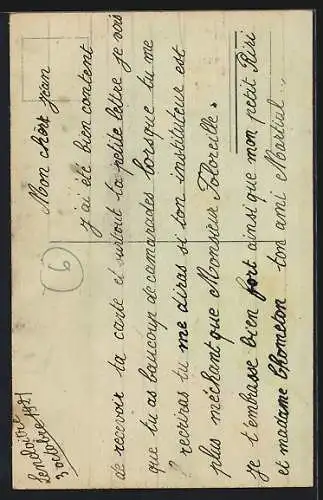 Lendoître
3 octobre 1921
Mon chèr jean
j'ai été bien content
de recevoir ta carte et surtout ta petite lettre je vois
que tu as baucoup de camarades lorsque tu me
recriras tu me diras si ton instituteur est
plus méchant que Monsieur Foloreille.
je t'embasse bien fort ainsi que mon petit Riri
et madame Chometon ton ami Martial
6